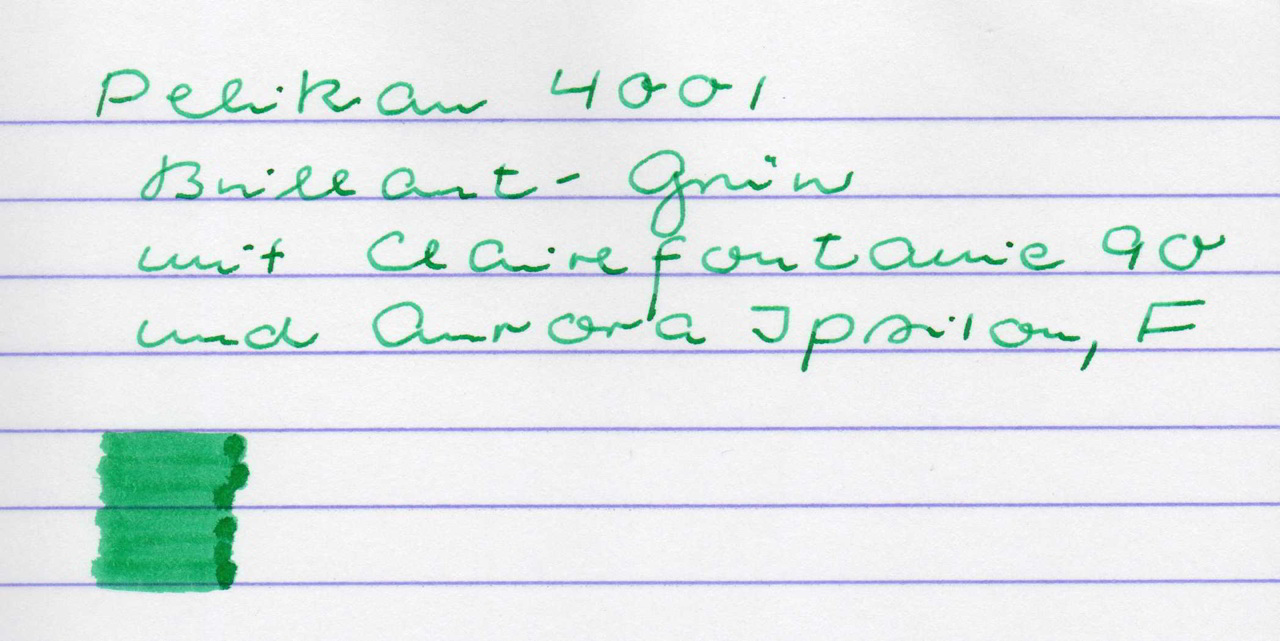 Pelikan 4001
Brillant-Grün
mit Clairefontaine 90
und Aurora Ipsilon, F